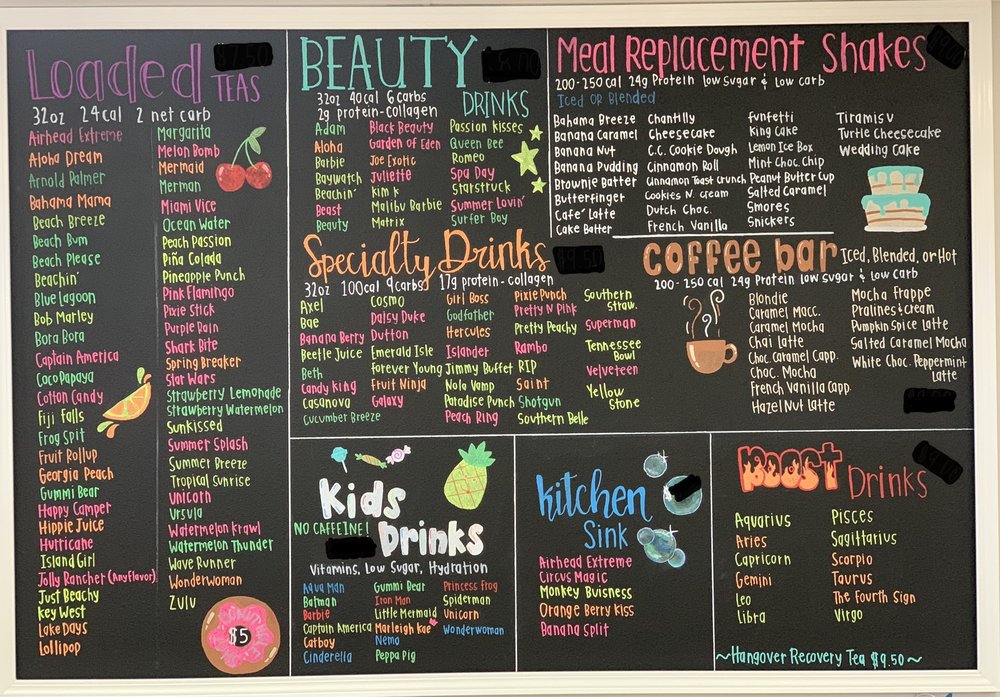 Loaded TEAS
32oz 24cal 2 net carb
Airhead Extreme
Aloha Dream
Arnold Palmer
Bahama Mama
Beach Breeze
Beach Bum
Beach Please
Beachin'
Blue lagoon
Bob Marley
Bora Bora
Captain America
Coco Papaya
Cotton Candy
Fiji Falls
Frog Spit
Fruit Rollup
Georgia Peach
Gummi Bear
Happy Camper
Hippie Juice
Hurricane
Island Girl
Jolly Rancher (Any Flavor)
Just Beachy
Key West
Lake Days
Lollipop
Margarita
Melon Bomb
Mermaid
Merman
Miami Vice
Ocean Water
Peach Passion
Piña Colada
Pineapple Punch
Pink Flamingo
Pixie Stick
Purple Rain
Shark Bite
Spring Breaker
Star Wars
Strawberry Lemonade
Strawberry Watermelon
Sunkissed
Summer Splash
Summer Breeze
Tropical Sunrise
Unicorn
Ursula
Watermelon Krawl
Watermelon Thunder
Wave Runner
Wonderwoman
Zulu
$5
BEAUTY
DRINKS
32oz 40cal 6carbs
2g protein-collagen
Adam
Aloha
Barbie
Baywatch
Beachin'
Beast
Beauty
Black Beauty
Garden of Eden
Joe Exotic
Juliette
Kim K
Malibu Barbie
Matrix
Passion kisses
Queen Bee
Romeo
Spa Day
Starstruck
Summer Lovin'
Surfer Boy
Meal Replacement Shakes
200-250cal 24g Protein low sugar & low carb
Iced or Blended
Bahama Breeze
Banana Caramel
Banana Nut
Banana Pudding
Brownie Batter
Butterfinger
Cafe' Latte
Cake Batter
Chantlly
Cheesecake
C.C. Cookie Dough
Cinnamon Roll
Cinnamon Toast Crunch
Cookies N. cream
Dutch Choc.
French Vanilla
Funfetti
King Cake
Lemon Ice Box
Mint Choc Chip
Peanut Butter Cup
Salted Caramel
Smores
Snickers
Tiramisu
Turtle Cheesecake
Wedding Cake
Specialty Drinks
32oz 100cal 9carbs 17g protein-collagen
Axel
Bae
Banana Berry
Beetle Juice
Beth
Candy King
Casanova
Cucumber Breeze
Cosmo
Daisy Duke
Dutton
Emerald Isle
Forever Young
Fruit Ninja
Galaxy
Girl Boss
Godfather
Hercules
Islander
Jimmy Buffet
Nola Vamp
Paradise Punch
Peach Ring
Pixie Punch
Pretty N Pink
Pretty Peachy
Rambo
RIP
Saint
Shotgun
Southern Belle
Southern Straw.
Superman
Tennessee
Bowl
Velveteen
Yellow
Stone
coffee bar
Iced, Blended, or Hot
200-250 cal 24g Protein low sugar & low carb
Blondie
Caramel Macc.
Caramel Mocha
Chai Latte
Choc. Caramel Capp.
Choc. Mocha
French Vanilla Capp.
Hazel Nut Latte
Mocha Frappe
Pralines & cream
Pumpkin Spice Latte
Salted Caramel Mocha
White Choc. Peppermint
Latte
Kids
NO CAFFEINE!
Drinks
Vitamins, Low Sugar, Hydration
Aqua Man
Batman
Barbie
Captain America
Catboy
Cinderella
Gummi Bear
Iron Man
Little Mermaid
Marleigh Kae
Nemo
Peppa Pig
Princess Frog
Spiderman
Unicorn
Wonderwoman
Kitchen
Sink
Airhead Extreme
Circus Magic
Monkey Buisness
Orange Berry Kiss
Banana Split
Boost Drinks
Aquarius
Aries
Capricorn
Gemini
Leo
Libra
Pisces
Sagittarius
Scorpio
Taurus
The Fourth Sign
Virgo
~Hangover Recovery Tea $9.50~